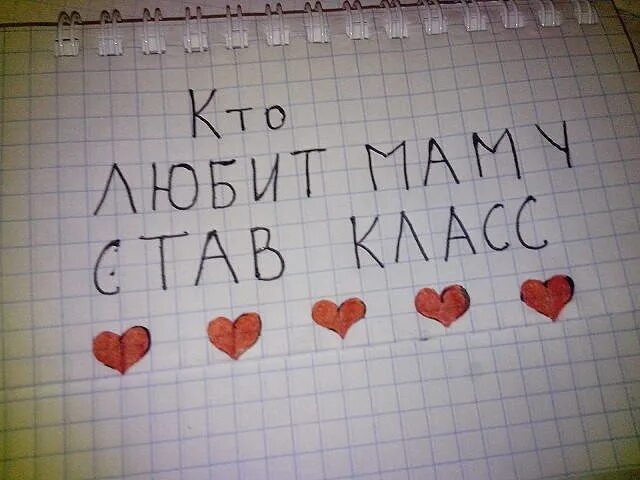 Кто
ЛЮБИТ МАМУ
СТАВ КЛАСС